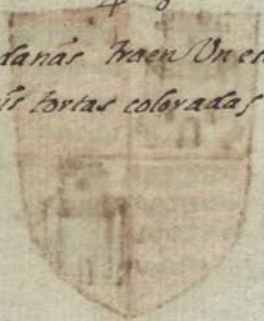 danas traen Un es
is tortas coloradas